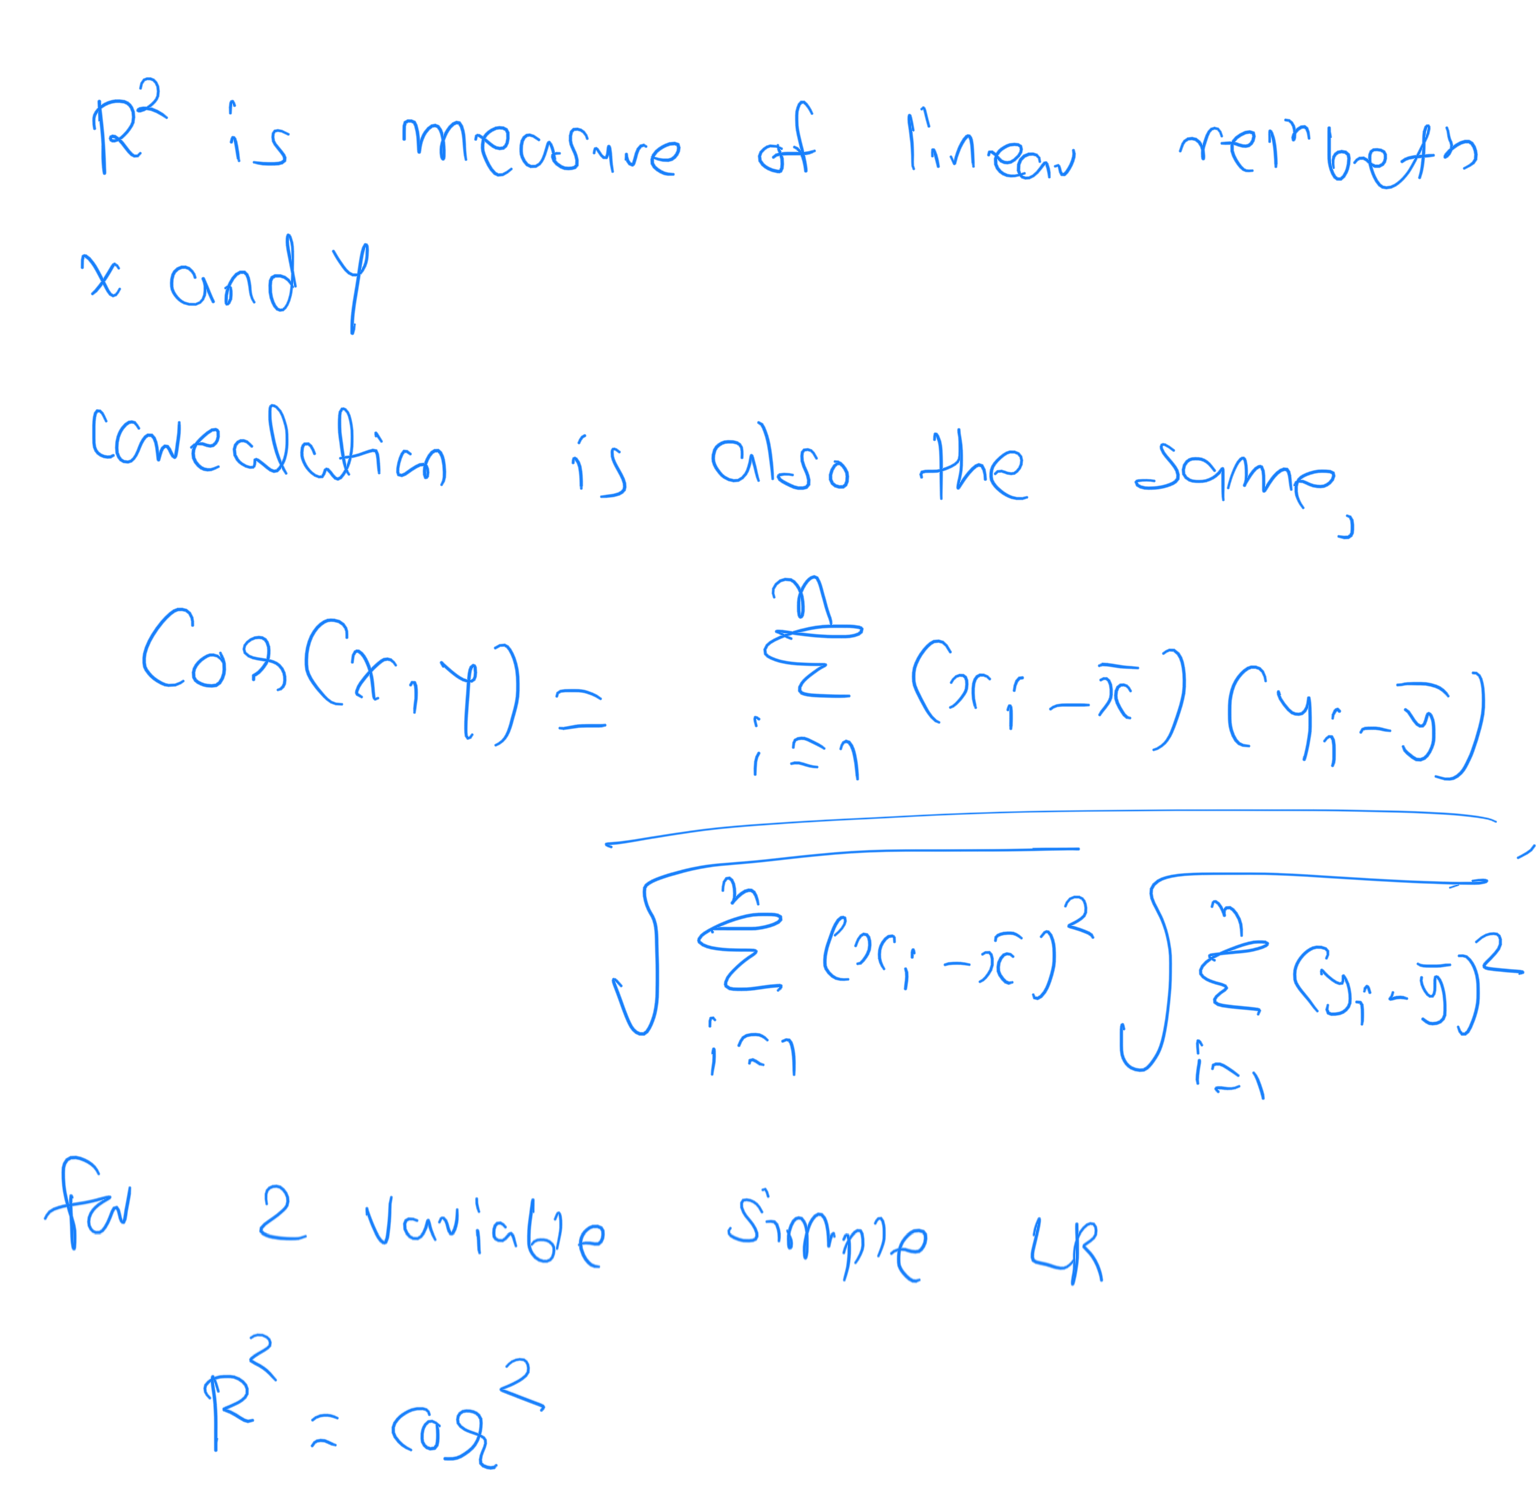 R² is measure of linear relⁿ betn
x and Y
correalation is also the same,
Cor(x,y) = \frac{\sum_{i=1}^{n} (x_i - \bar{x})(y_i - \bar{y})}{\sqrt{\sum_{i=1}^{n} (x_i - \bar{x})^2} \sqrt{\sum_{i=1}^{n} (y_i - \bar{y})^2}},
for 2 variable simple LR
R² = cor²